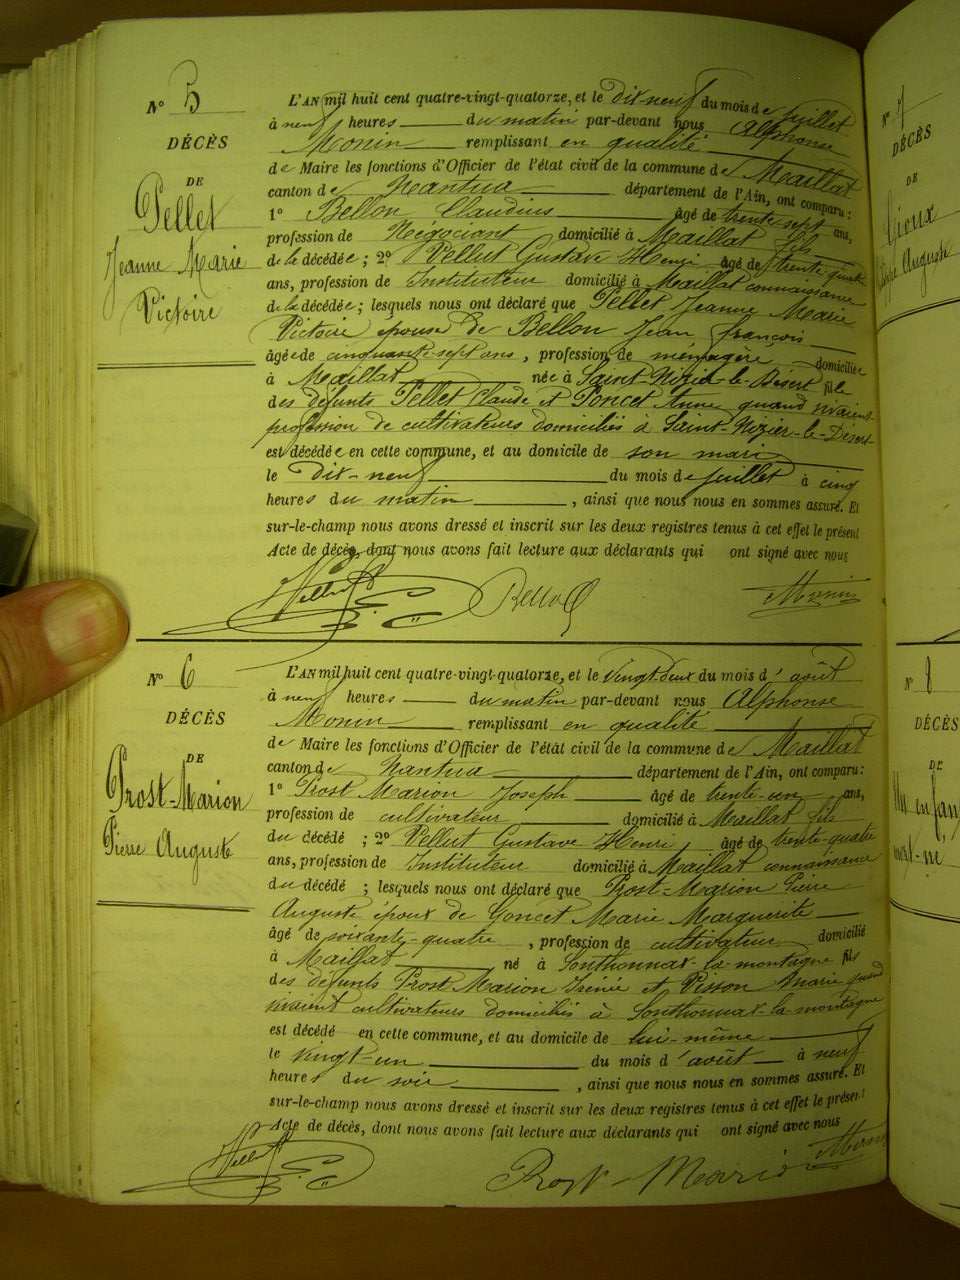 N° 5
DÉCÈS
DE
Pellet
Jeanne Marie
Victoire
L'AN mil huit cent quatre-vingt-quatorze, et le dix-neuf du mois de juillet
à neuf heures du matin par-devant nous Alphonse
Monin remplissant en qualité
de Maire les fonctions d'Officier de l'état civil de la commune de Maillat
canton de Nantua département de l'Ain, ont comparu :
1° Bellon Claudius âgé de trente-sept ans,
profession de Négociant domicilié à Maillat fils
de la décédée ; 2° Vellut Gustave Henri âgé de trente quatre
ans, profession de Instituteur domicilié à Maillat connaissance
de la décédée ; lesquels nous ont déclaré que Pellet Jeanne Marie
Victoire épouse de Bellon Jean françois
âgée de cinquante-sept ans, profession de ménagère domiciliée
à Maillat née à Saint-Nizier-le-Désert fille
des défunts Pellet Claude et Poncet Anne quand vivaient
profession de cultivateurs domiciliés à Saint-Nizier-le-Désert
est décédée en cette commune, et au domicile de son mari
le dix-neuf du mois de juillet à cinq
heures du matin, ainsi que nous nous en sommes assuré. Et
sur-le-champ nous avons dressé et inscrit sur les deux registres tenus à cet effet le présent
Acte de décès, dont nous avons fait lecture aux déclarants qui ont signé avec nous
Vellut Bellon Monin
N° 6
DÉCÈS
DE
Prost-Marion
Pierre Auguste
L'AN mil huit cent quatre-vingt-quatorze, et le vingt-deux du mois d'août
à neuf heures du matin par-devant nous Alphonse
Monin remplissant en qualité
de Maire les fonctions d'Officier de l'état civil de la commune de Maillat
canton de Nantua département de l'Ain, ont comparu :
1° Prost Marion Joseph âgé de trente-un ans,
profession de cultivateur domicilié à Maillat fils
du décédé ; 2° Vellut Gustave Henri âgé de trente-quatre
ans, profession de Instituteur domicilié à Maillat connaissance
du décédé ; lesquels nous ont déclaré que Prost-Marion Pierre
Auguste époux de Goncet Marie Marguerite
âgé de soixante-quatre, profession de cultivateur domicilié
à Maillat né à Sonthonnax-la-montagne fils
des défunts Prost Marion Irénée et Pisson Marie quand
vivaient cultivateurs domiciliés à Sonthonnax-la-montagne
est décédé en cette commune, et au domicile de lui-même
le vingt-un du mois d'août à neuf
heures du soir, ainsi que nous nous en sommes assuré. Et
sur-le-champ nous avons dressé et inscrit sur les deux registres tenus à cet effet le présent
Acte de décès, dont nous avons fait lecture aux déclarants qui ont signé avec nous
Vellut Prost-Marion Monin
N° 7
DÉCÈS
DE
Auguste
N° 8
DÉCÈS
DE
Un enfan
mort-né